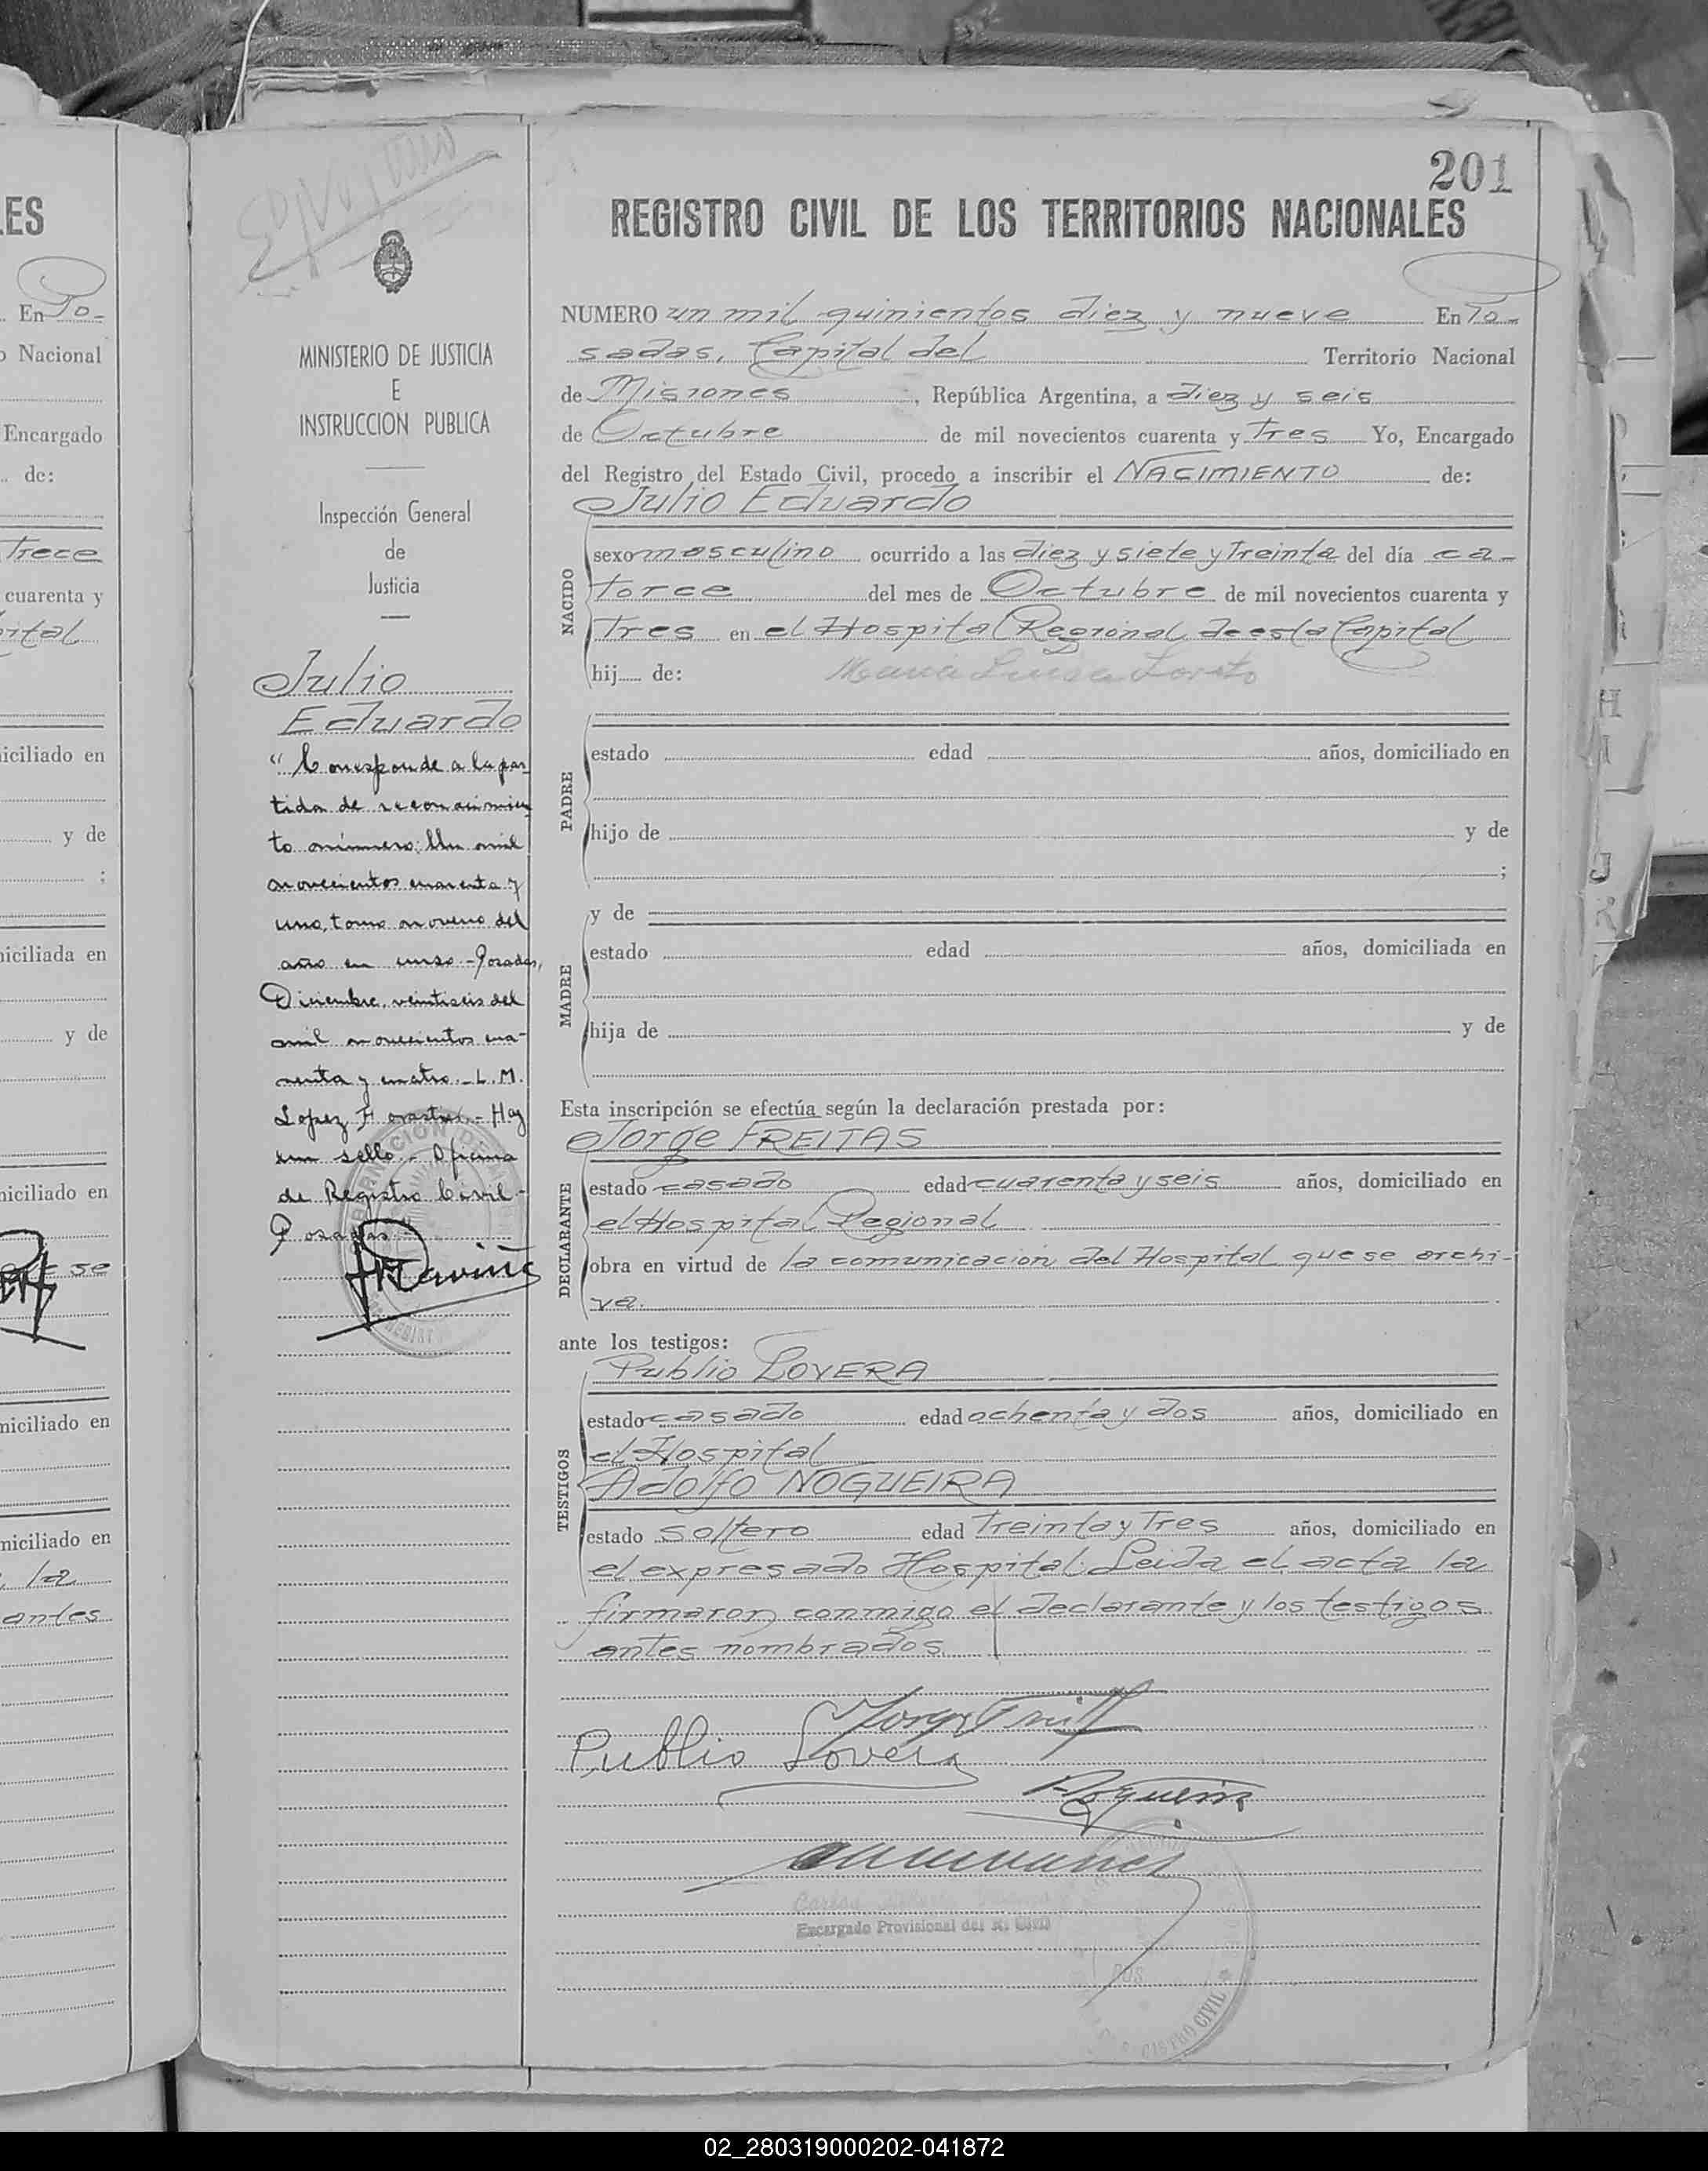 201
REGISTRO CIVIL DE LOS TERRITORIOS NACIONALES
NUMERO un mil quinientos diez y nueve En Po-
sadas, Capital del Territorio Nacional
de Misiones, República Argentina, a diez y seis
de Octubre de mil novecientos cuarenta y tres Yo, Encargado
del Registro del Estado Civil, procedo a inscribir el NACIMIENTO de:
Julio Eduardo
NACIDO
sexo masculino ocurrido a las diez y siete y treinta del día ca-
torce del mes de Octubre de mil novecientos cuarenta y
tres en el Hospital Regional de esta Capital
hij de: Maria Luisa
PADRE
estado edad años, domiciliado en
hijo de y de
;
MADRE
y de
estado edad años, domiciliada en
hija de y de
Esta inscripción se efectúa según la declaración prestada por:
Jorge FREITAS
DECLARANTE
estado casado edad cuarenta y seis años, domiciliado en
el Hospital Regional
obra en virtud de la comunicacion del Hospital que se archi-
va.
ante los testigos:
Publio LOVERA
TESTIGOS
estado casado edad ochenta y dos años, domiciliado en
el Hospital
Adolfo NOGUEIRA
estado soltero edad treinta y tres años, domiciliado en
el expresado Hospital. Leida el acta la
firmaron conmigo el declarante y los testigos
antes nombrados.
Publio Lovera
Encargado Provisional del R. Civil
MINISTERIO DE JUSTICIA
E
INSTRUCCION PUBLICA
Inspección General
de
Justicia
Julio
Eduardo
"Corresponde a la par-
tida de reconocimien-
to número: Un mil
novecientos cuarenta y
uno, tomo noveno del
año en curso.-Posadas,
Diciembre, veintiseis del
mil novecientos cua-
renta y cuatro.-L.M.
Lopez Forastier.- Hay
un sello.- Oficina
de Registro Civil-
Posadas.-
LES
En Po-
Nacional
Encargado
de:
Trece
cuarenta y
iciliado en
y de
;
iciliada en
y de
niciliado en
se
niciliado en
niciliado en
la
antes
02_280319000202-041872